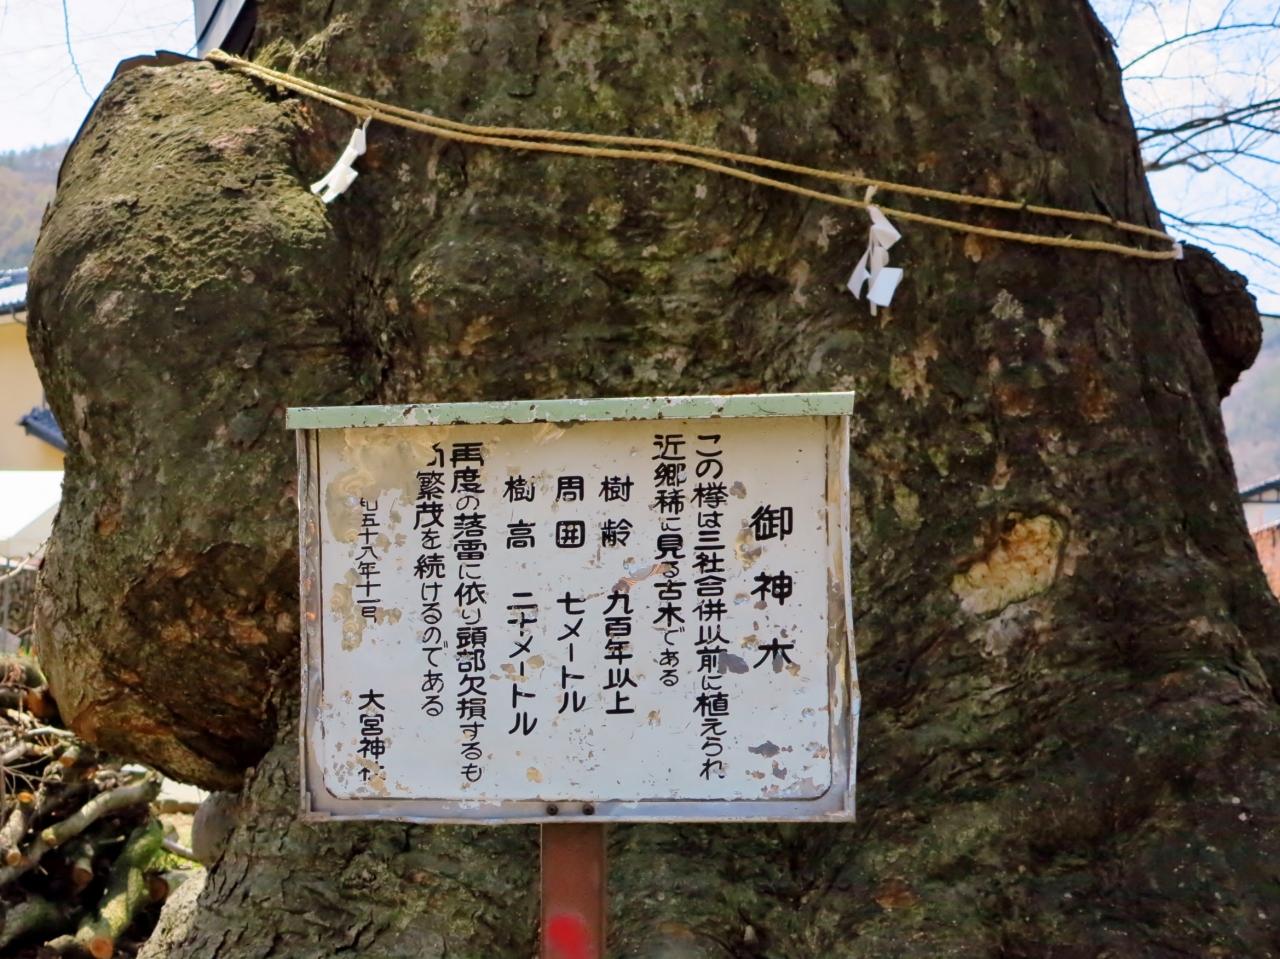 御神木
この欅は三社合併以前に植えられ
近郷稀に見る古木である
樹齢 九百年以上
周囲 七メートル
樹高 二十メートル
再度の落雷に依り頭部欠損するも
繁茂を続けるのである
五十八年十一日
大宮神社